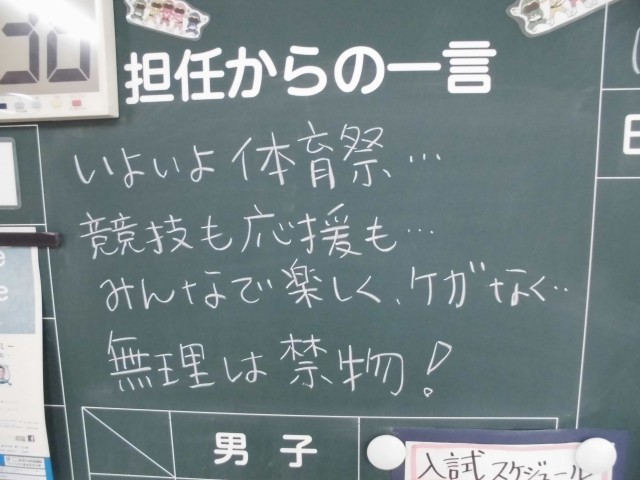 30
担任からの一言
いよいよ体育祭…
競技も応援も…
みんなで楽しく、ケガなく‥
無理は禁物!
男子
入試スケジュール